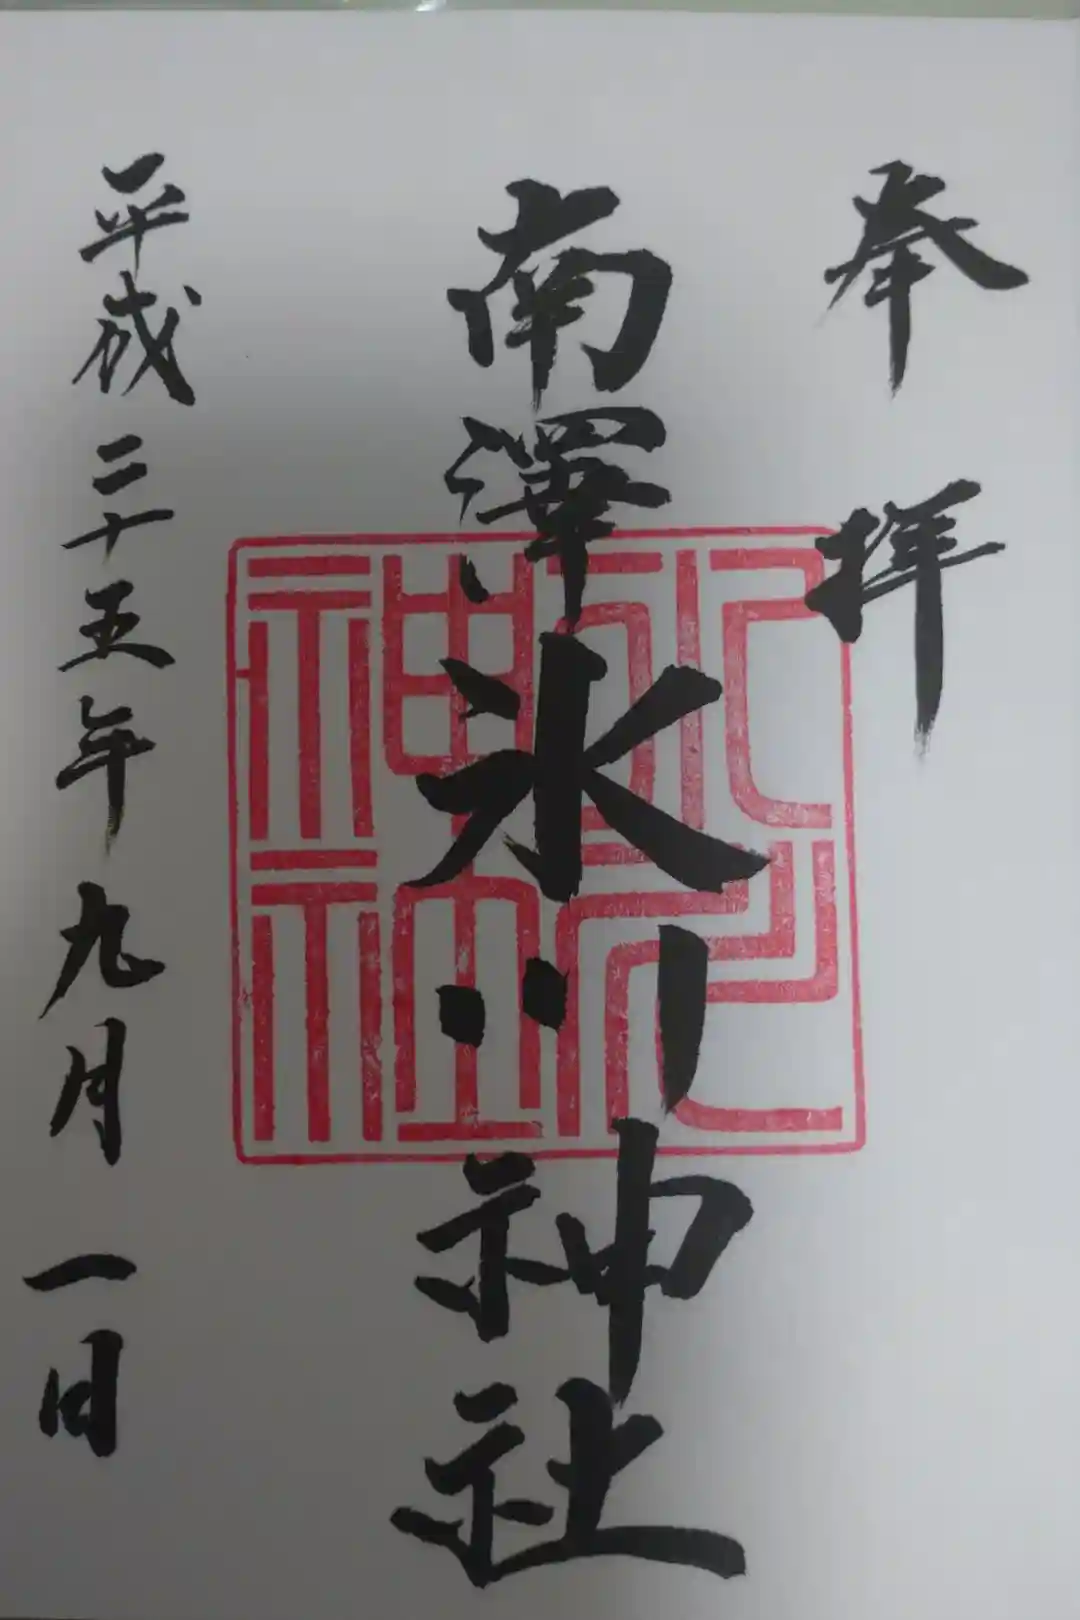 奉拝
南澤氷川神社
平成二十五年九月一日
氷川神社